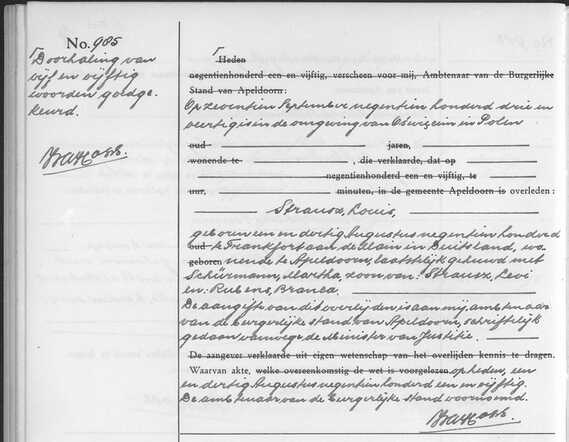 No. 985
Doorhaling van
vijf en vijftig
woorden goedge-
keurd.
Heden
negentienhonderd een en vijftig, verscheen voor mij, Ambtenaar van de Burgerlijke
Stand van Apeldoorn:
Op zeventien September negentien honderd drie en
veertig is in de omgeving van Oświęcim in Polen
oud jaren,
wonende te , die verklaarde, dat op
negentienhonderd een en vijftig, te
uur, minuten, in de gemeente Apeldoorn is overleden:
Strausz, Louis,
geboren een en dertig Augustus negentien honderd
oud te Frankfort aan de Main in Duitsland, wo-
geboren nende te Apeldoorn, laatstelijk gehuwd met
Schürmann, Martha, zoon van: Strausz, Levi
en: Rubens, Branca.
De aangifte van dit overlijden is aan mij, ambtenaar
van de burgerlijke stand van Apeldoorn, schriftelijk
gedaan vanwege de Minister van Justitie.
De aangever verklaarde uit eigen wetenschap van het overlijden kennis te dragen.
Waarvan akte, welke overeenkomstig de wet is voorgelezen op heden, een
en dertig Augustus negentien honderd een en vijftig.
De ambtenaar van de burgerlijke stand voornoemd.